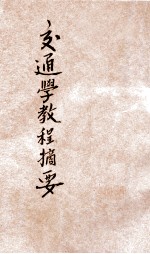 交通學教程摘要